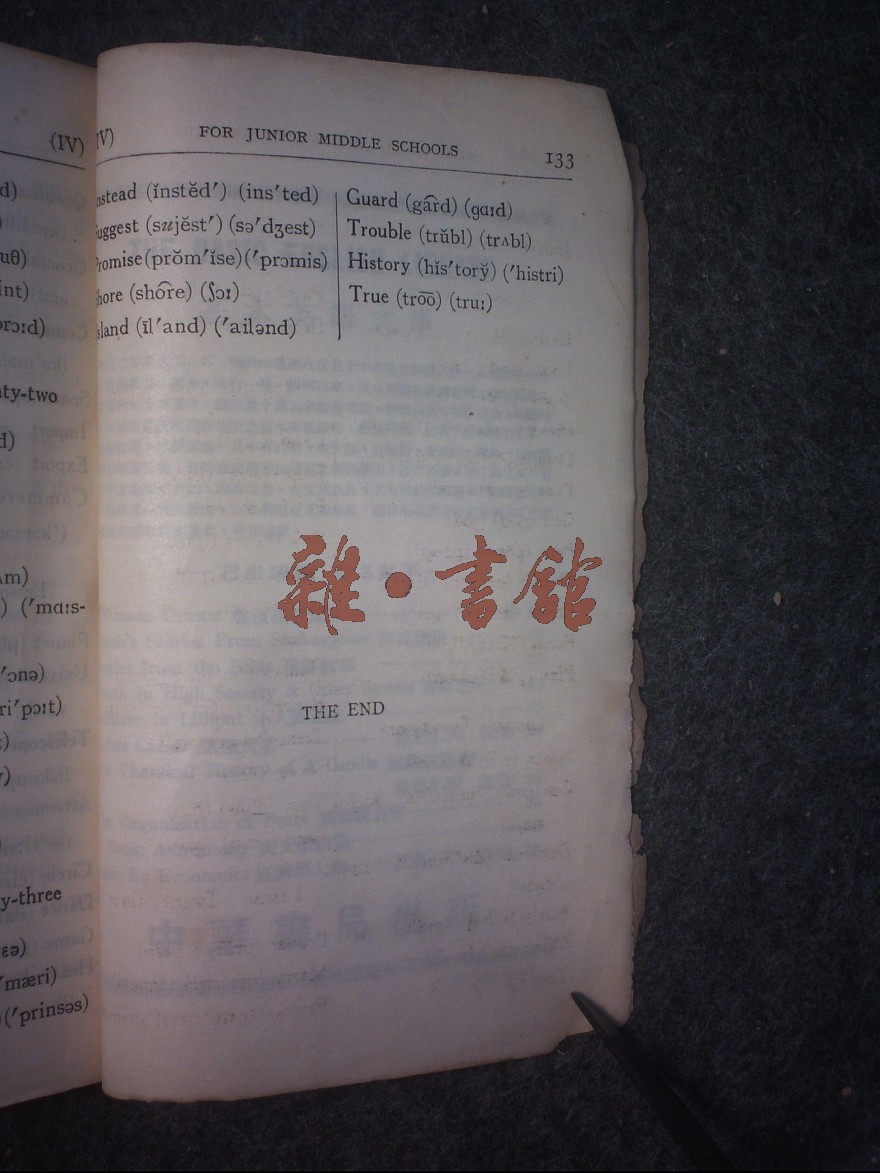 (IV)
d)
uθ)
int)
ɔrɔːd)
ty-two
d)
ʌm)
) (ˈmɑːs-
ˈɔnə)
riˈpɔːt)
y-three
ɛə)
ˈmæri)
(ˈprinsəs)
IV) FOR JUNIOR MIDDLE SCHOOLS 133
nstead (ĭnstĕdʹ) (insˈted)
uggest (sujĕstʹ) (səˈdʒest)
romise (prŏmʹĭse) (ˈprɔmis)
hore (shōre) (ʃɔː)
sland (īlʹand) (ˈailənd)
Guard (gârd) (gɑːd)
Trouble (trŭbl) (trʌbl)
History (hĭsʹtorў) (ˈhistri)
True (tro͞o) (truː)
雜·書館
THE END